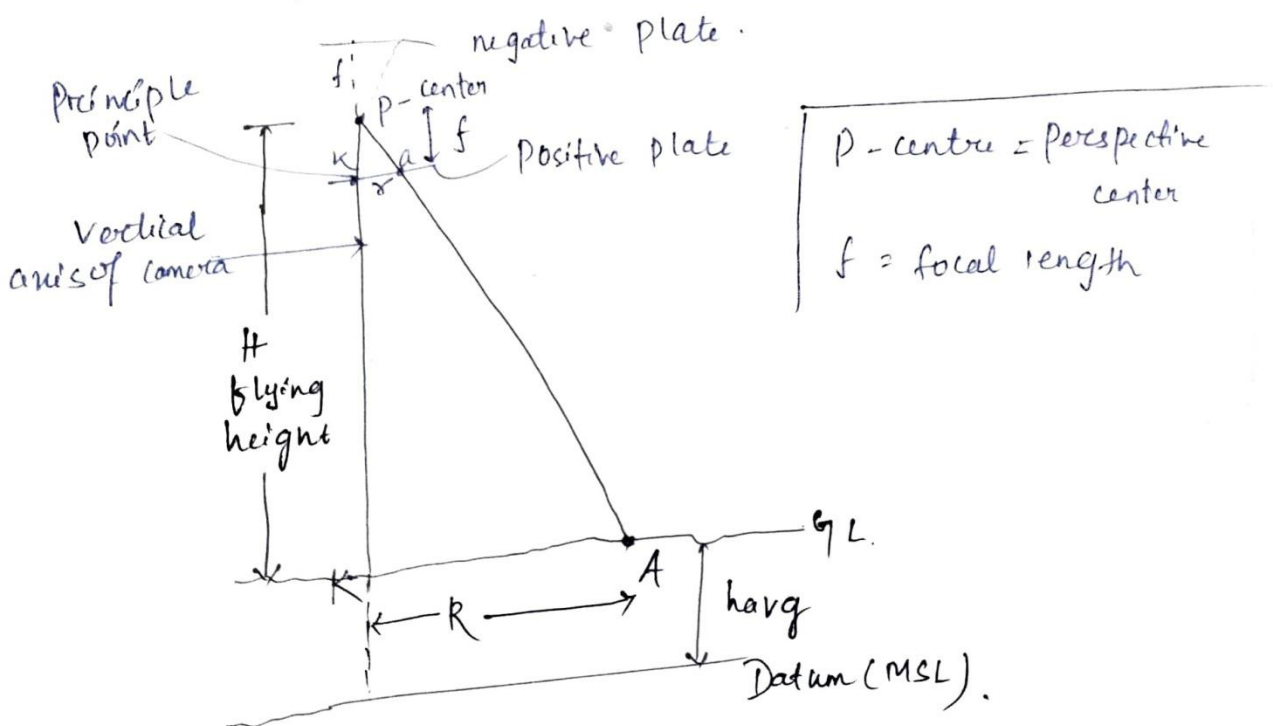 negative plate.
f
P-center
Principle
point
f
K
a
r
Positive plate
P-centre = perspective
center
f = focal length
Vertical
axis of camera
H
flying
height
GL.
A
K
R
havg
Datum (MSL).